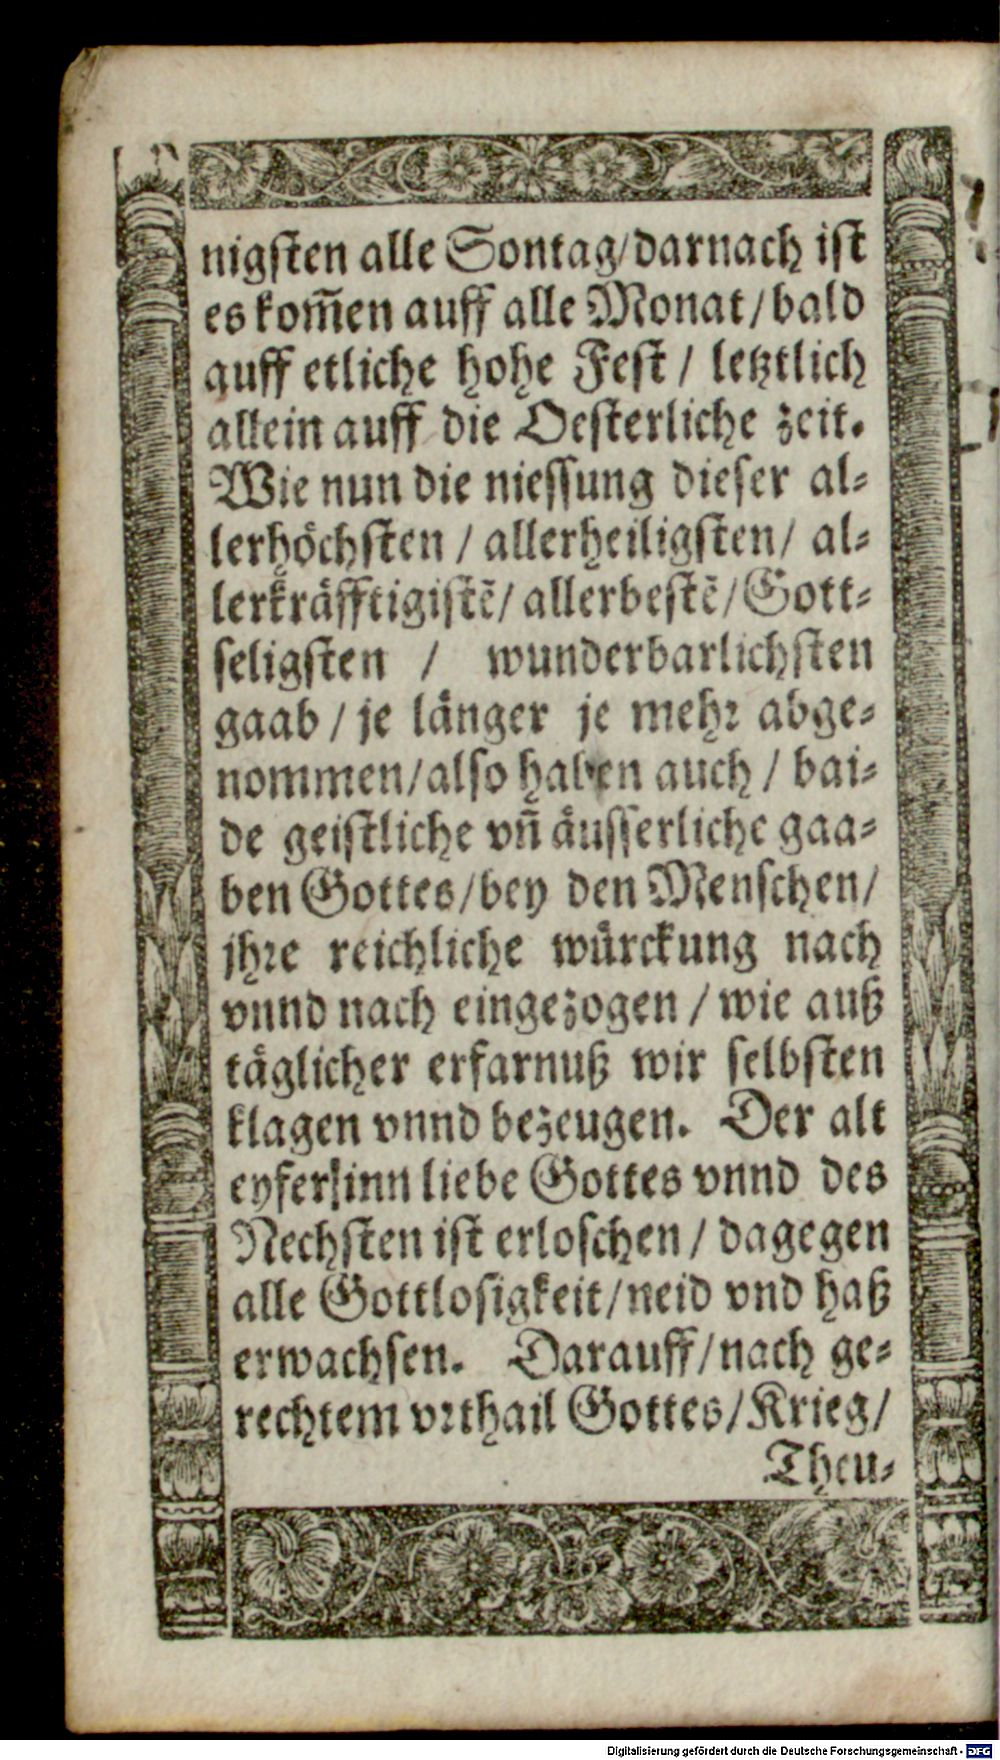 nigsten alle Sontag/darnach ist
es kom̃en auff alle Monat/bald
auff etliche hohe Fest / letztlich
allein auff die Oesterliche zeit.
Wie nun die niessung dieser al-
lerhöchsten / allerheiligsten/ al-
lerkräfftigistẽ/ allerbestẽ/Gott-
seligsten / wunderbarlichsten
gaab / je länger je mehr abge-
nommen/also haben auch / bai-
de geistliche vñ äusserliche gaa-
ben Gottes/bey den Menschen/
jhre reichliche würckung nach
vnnd nach eingezogen / wie auß
täglicher erfarnuß wir selbsten
klagen vnnd bezeugen. Der alt
eyfer/inn liebe Gottes vnnd des
Nechsten ist erloschen / dagegen
alle Gottlosigkeit/neid vnd haß
erwachsen. Darauff/nach ge-
rechtem vrthail Gottes/Krieg/
Theu-
Digitalisierung gefördert durch die Deutsche Forschungsgemeinschaft - DFG